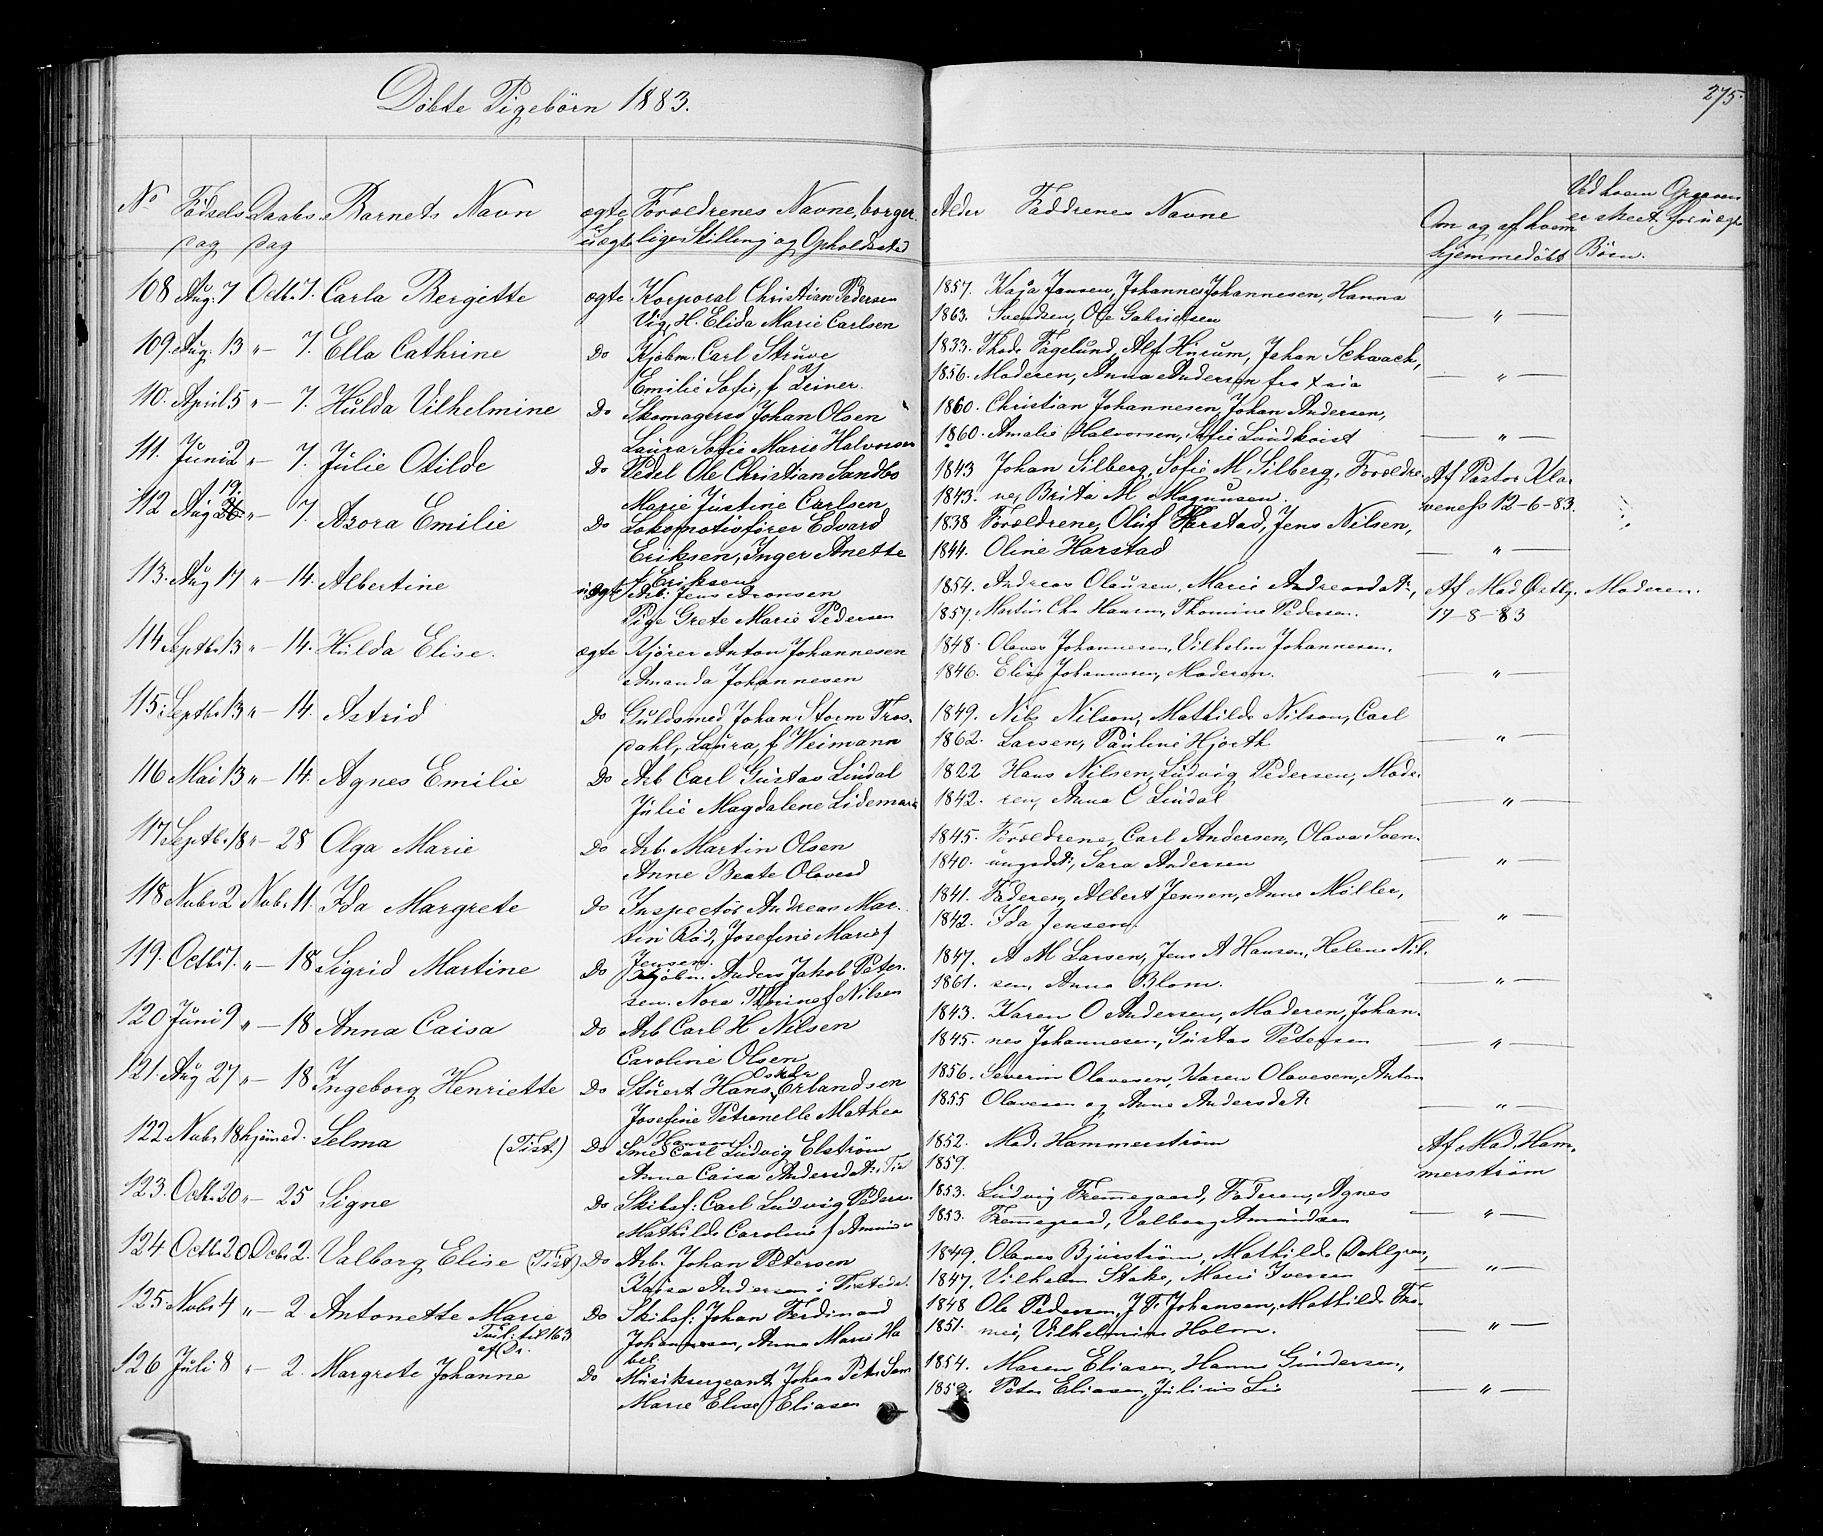 Döbte Pigebörn 1883.
275.
No Födsels Daabs Barnets Navn ægte Forældrenes Navne, borger Alder Faddrenes Navne Om og af hvem Ved hvem Opgaven
dag dag uægte lige Stilling og Opholdssted hjemmedöbt er skeet for uægte
Börn.
108 Aug. 7 Octb. 7. Carla Bergitte ægte Korporal Christian Pedersen 1857. Kaja Jansen, Johannes Johannesen, Hanna
Vig, H. Elida Marie Carlsen 1863. Svendsen, Ole Gabrielsen — " —
109. Aug. 13 " — 7. Ella Cathrine Do Kjöbm. Carl Struve 1833. Fagelund, Alf Husum, Johan Schwach,
Emilie Sofie, f Zeiner. 1856. Moderen, Anna Andersen fra — " —
110. April 5 " — 7. Hulda Vilhelmine Do Skomagersv Johan Olsen 1860. Christian Johannesen, Johan Andersen,
Laura Sofie Marie Halvorsen 1860. Amalie Halvorsen, Sofie Lundkvist — " —
111. Juni 2 " — 7. Julie Otilde Do Pedel Ole Christian Sandbo 1843 Johan Silberg, Sofie M Silberg, Forældre Af Pastor Kla
Marie Justine Carlsen 1843. ne, Brita M Magnusen. veness 12-6-83.
112 Aug 19 " — 7. Asora Emilie Do Lokomotivförer Edvard 1838 Forældrene, Oluf Harstad, Jens Nilsen,
Eriksen, Inger Anette 1844. Oline Harstad — " —
f Eriksen
113. Aug 14 " — 14. Albertine uægte Arb. Jens Aronsen 1854. Andreas Olausen, Marie Andreasdat:, Af Mad Ostby. Moderen.
Pige Grete Marie Pedersen 1857. Martin Chr Hansen, Thomine Pedersen. 17-8-83
114. Septbr 13 " — 14. Hulda Elise. ægte Kjörer Anton Johannesen 1848. Olaves Johannesen, Vilhelm Johannesen,
Amanda Johannesen 1846. Elise Johannesen, Moderen. — " —
115. Septbr 13 " — 14. Astrid Do Guldsmed Johan Storm Tros- 1849. Nils Nilson, Mathilde Nilson, Carl
dahl, Laura, f Weimann 1862. Larsen, Pauline Hjorth — " —
116 Mai 13 " — 14. Agnes Emilie Do Arb Carl Gustav Lindal 1822 Hans Nilsen, Ludvig Pedersen, Mode-
Julie Magdalene Lidemark 1842. ren, Anna C Lindal — " —
117. Septbr 18 " — 28 Olga Marie Do Arb. Martin Olsen 1845. Forældrene, Carl Andersen, Olava Sven-
Anne Beate Olavesd 1840. ungsdat:, Sara Andersen — " —
118 Novbr 2 Novbr. 11. Ida Margrete Do Inspectör Andreas Mar- 1841. Faderen, Albert Jensen, Anne Möller,
tin Röd, Josefine Marie f 1842. Ida Jensen. — " —
Jensen.
119. Octbr 7. " — 18 Sigrid Martine Do Kjöbm. Anders Jakob Peter- 1847. A M Larsen, Jens A Hansen, Helene Nil-
sen. Nora Thorine f Nilsen 1861. sen, Anna Blom. — " —
120 Juni 9 " — 18 Anna Caisa Do Arb Carl H Nilsen 1843. Karen O Andersen, Moderen, Johan-
Caroline Olsen 1845. nes Johannesen, Gustav Petersen — " —
Oskar
121. Aug 27 " — 18 Ingeborg Henriette Do Stuert Hans Erlandsen 1856. Severin Olavesen, Karen Olavesen, Anton
Josefine Petronelle Mathea 1855 Olavesen og Anne Andersdat: — " —
Hansen
122 Novbr 18 hjemmed. Selma (Tist.) Do Smed Carl Ludvig Elström 1852. Mad. Hammerström Af Mad. Ham-
Anna Caisa Andersdat: i Tist 1859. merström
123. Octbr 20 " — 25 Signe Do Skibsf: Carl Ludvig Peders. 1853. Ludvig Fremmegaard, Faderen, Agnes
Mathilde Caroline f Amund 1853. Fremmegaard, Valborg Amundsen — " —
124 Octbr. 20 Dcbr. 2. Valborg Elise (Tist.) Do Arb. Johan Petersen 1849. Olaves Bjurström, Mathilde Dahlgren,
Kaisa Andersen i Tistedal. 1847. Vilhelm Stake, Marie Iversen — " —
125. Novbr 4 " — 2. Antonette Marie Do Skibsf: Johan Ferdinand 1848 Ole Pedersen, J F Johansen, Mathilde
Johannesen, Anna Marie Ha 1851. Vilhelmine Holm. — " —
bel
126 Juli 8 " — 2. Margrete Johanne Do Musiksergeant Johan Peter Sam 1854. Maren Eliasen, Hanne Gundersen,
Marie Elise f Eliasen 1859. Peter Eliasen, Julius Lie — " —